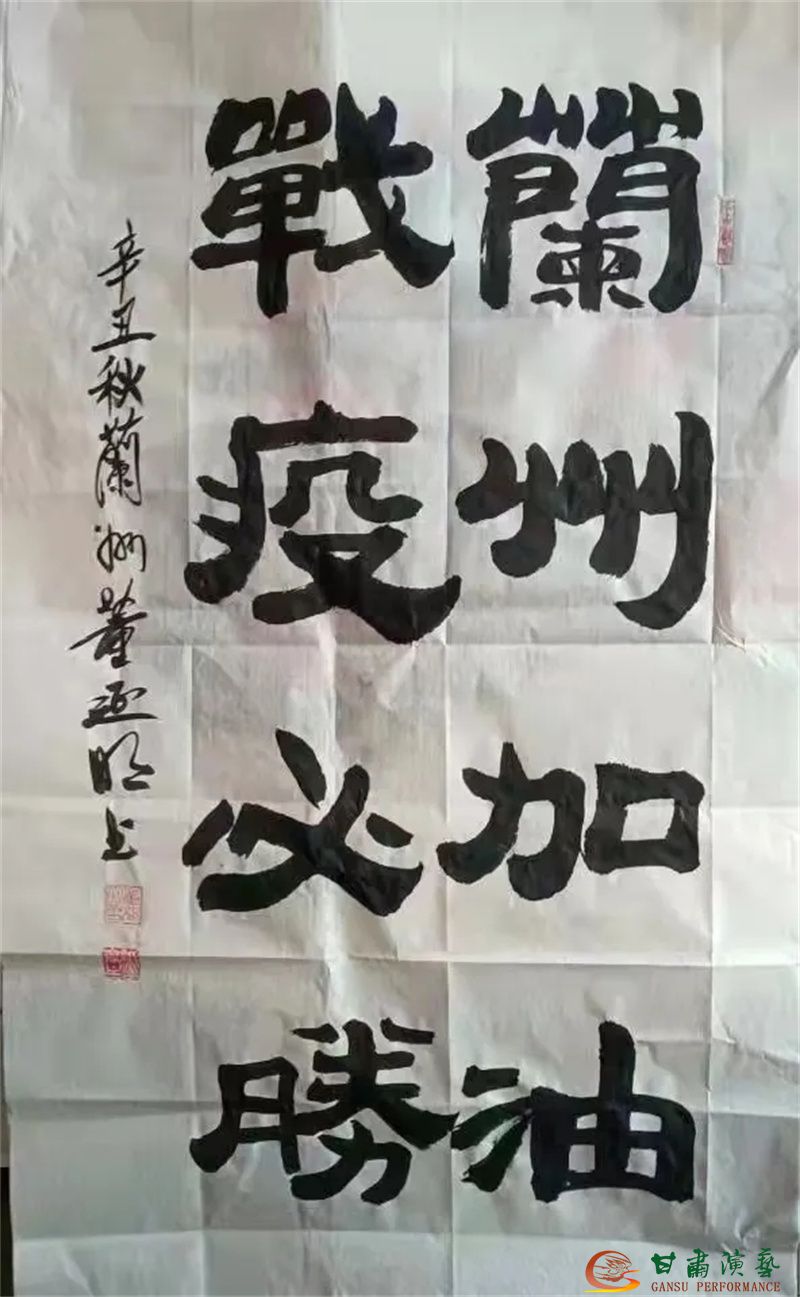 蘭州加油
戰疫必勝
辛丑秋蘭州董
明
甘肅演藝
GANSU PERFORMANCE